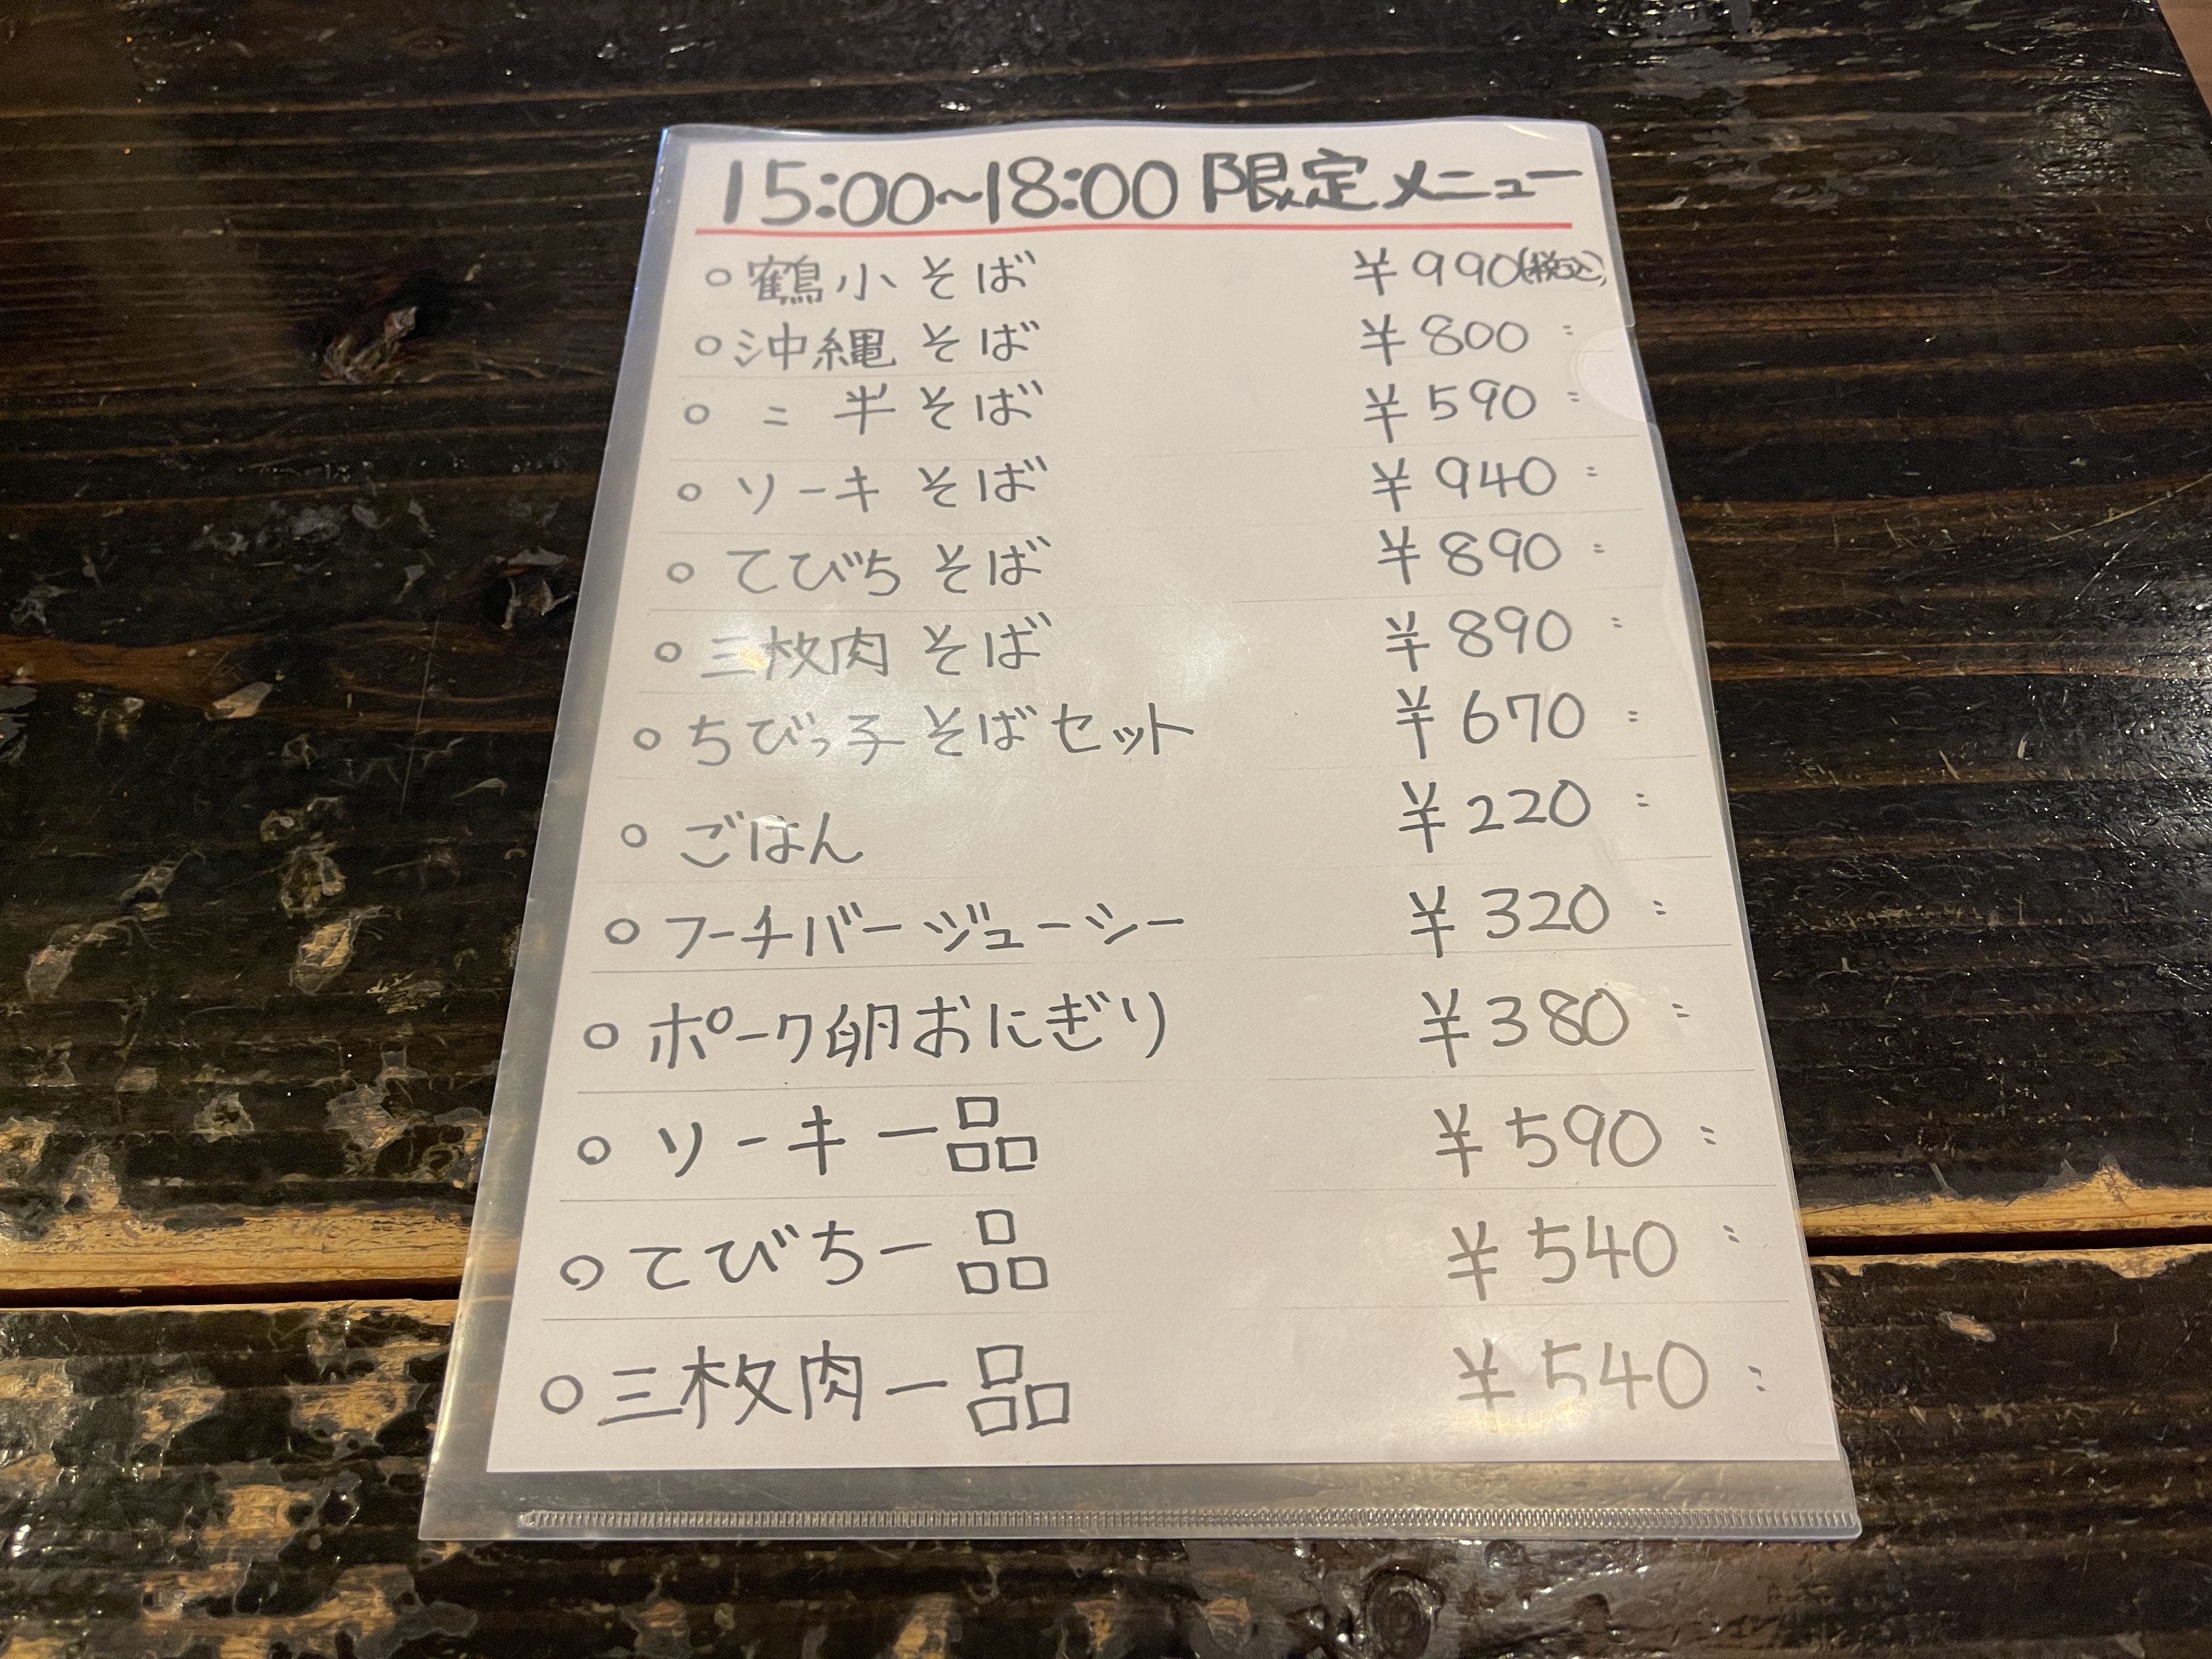 15:00~18:00 限定メニュー
○鶴小そば ¥990(税込)
○沖縄そば ¥800 〃
○ 〃 半そば ¥590 〃
○ソーキそば ¥940 〃
○てびちそば ¥890 〃
○三枚肉そば ¥890 〃
○ちびっ子そばセット ¥670 〃
○ごはん ¥220 〃
○フーチバージューシー ¥320 〃
○ポーク卵おにぎり ¥380 〃
○ソーキ一品 ¥590 〃
○てびち一品 ¥540 〃
○三枚肉一品 ¥540 〃